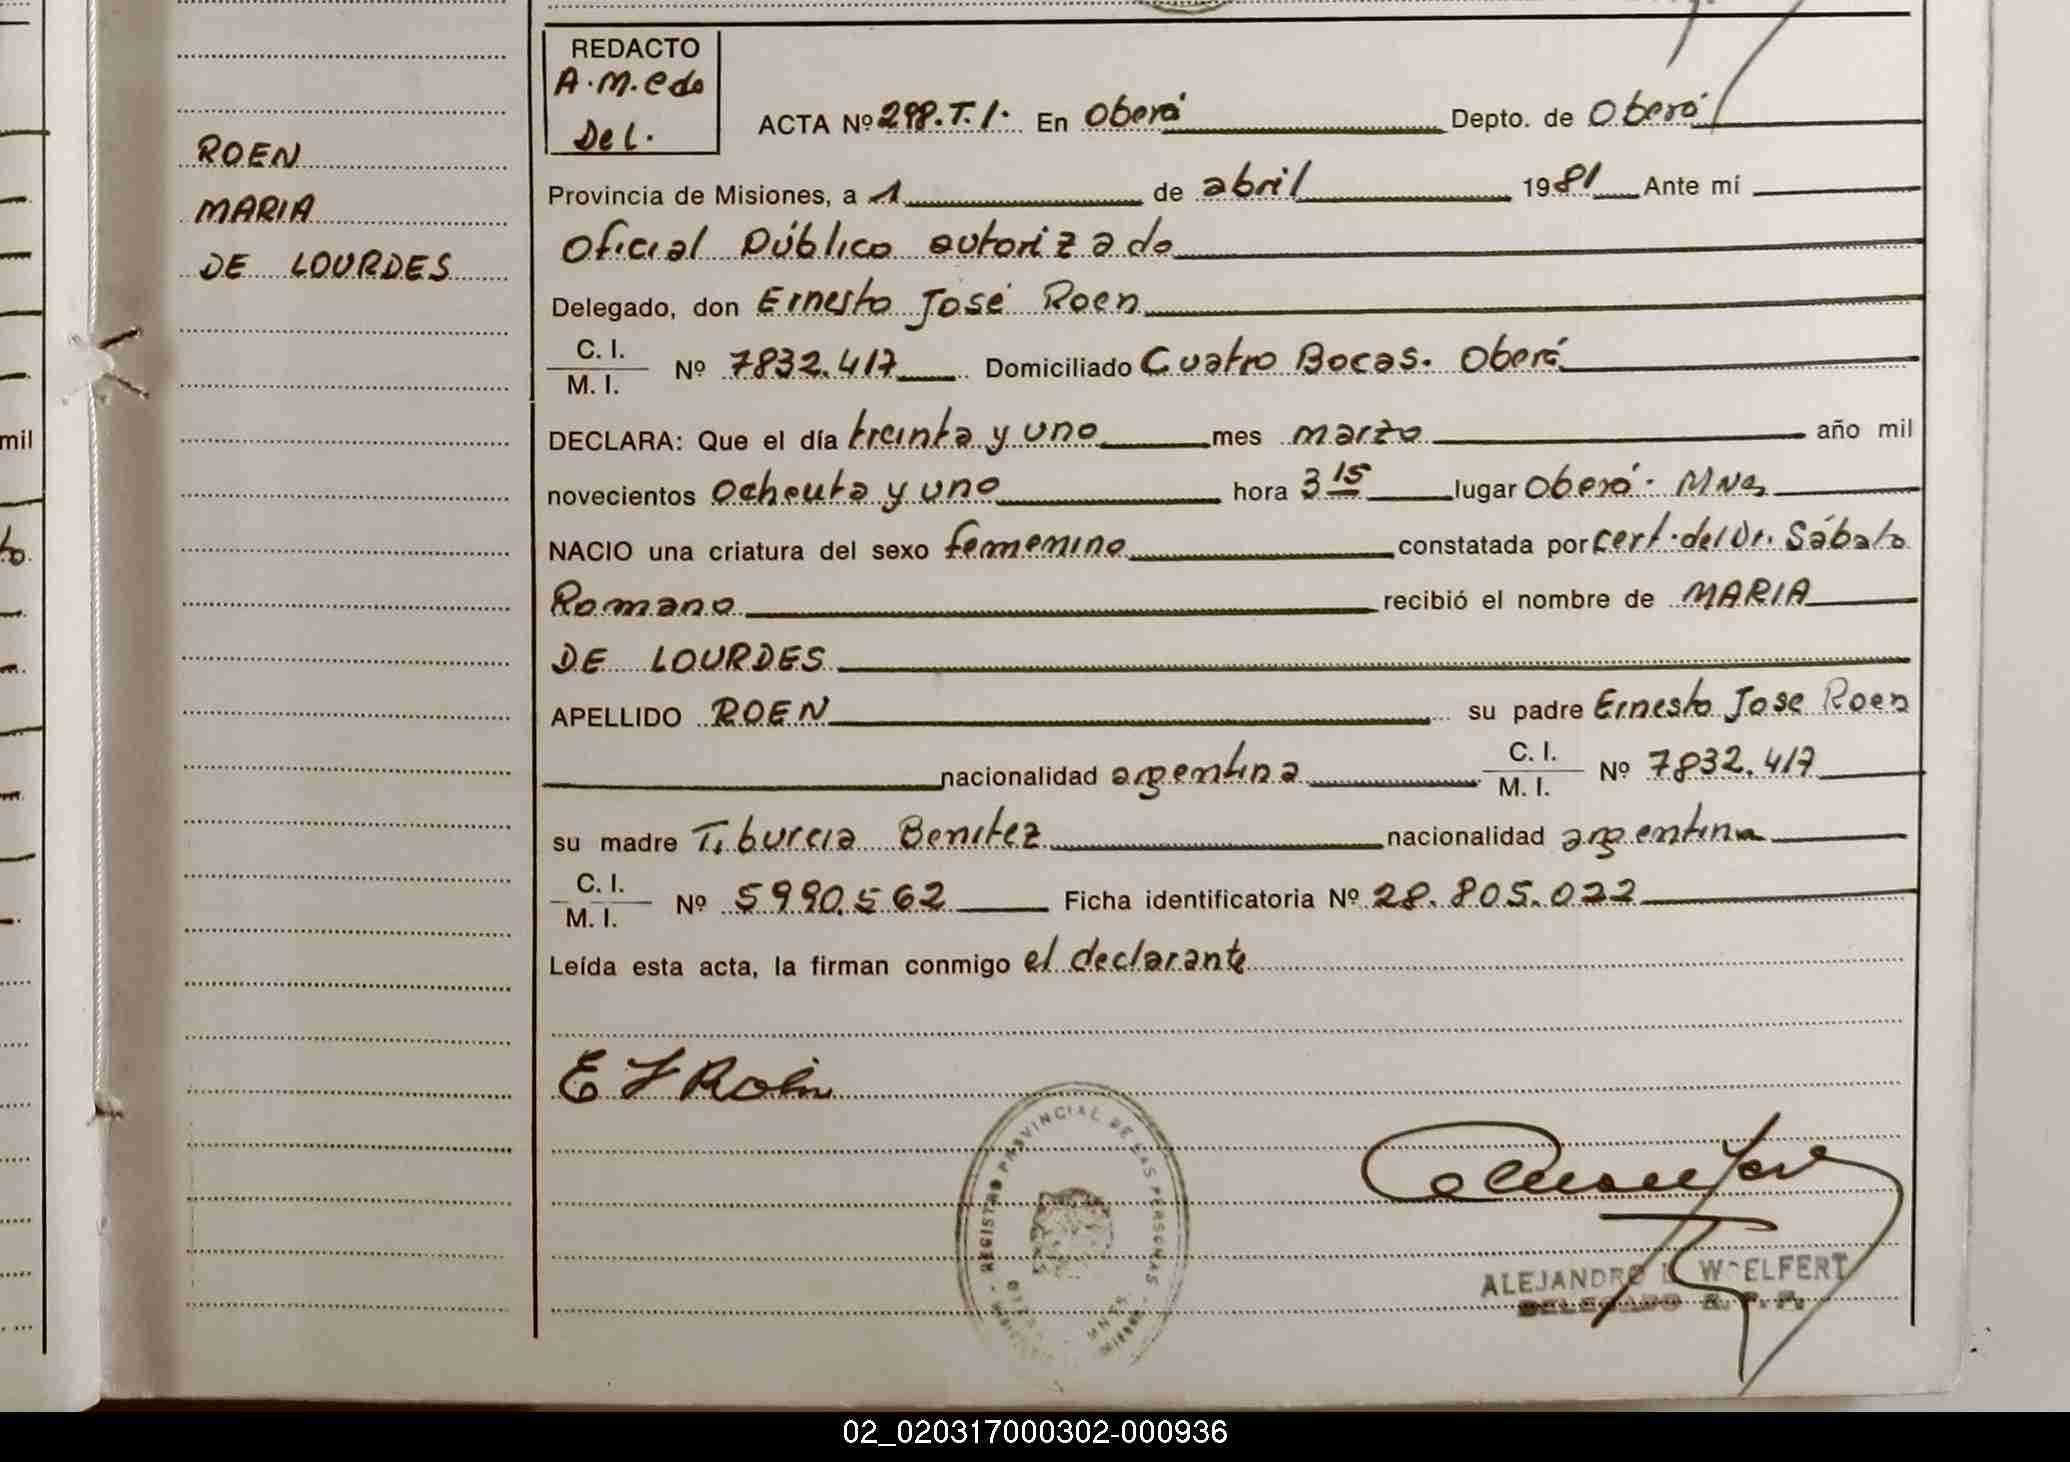 REDACTO
A.M. e do
Del.
ACTA Nº 298.T.1. En Oberá Depto. de Oberá
ROEN
MARIA
DE LOURDES
Provincia de Misiones, a 1 de abril 1981 Ante mí
Oficial Público autorizado
Delegado, don Ernesto José Roen
C. I.
M. I. Nº 7832.417 Domiciliado Cuatro Bocas. Oberá
DECLARA: Que el día treinta y uno mes marzo año mil
novecientos ochenta y uno hora 3 15 lugar Oberá. Mnes
NACIO una criatura del sexo femenino constatada por cert. del Dr. Sábato
Romano recibió el nombre de MARIA
DE LOURDES
APELLIDO ROEN su padre Ernesto Jose Roen
nacionalidad argentina C. I.
M. I. Nº 7832.417
su madre Tiburcia Benitez nacionalidad argentina
C. I.
M. I. Nº 5990.562 Ficha identificatoria Nº 28.805.022
Leída esta acta, la firman conmigo el declarante
E J Roen
REGISTRO PROVINCIAL DE LAS PERSONAS
ALEJANDRO WOELFERT
DELEGADO R. P. P.
mil
to.
02_020317000302-000936